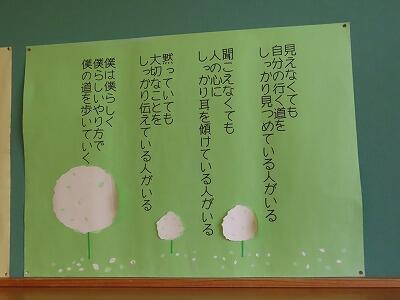 見えなくても
自分の行く道を
しっかり見つめている人がいる
聞こえなくても
人の心に
しっかり耳を傾けている人がいる
黙っていても
大切なことを
しっかり伝えている人がいる
僕は僕らしく
僕らしいやり方で
僕の道を歩いていく